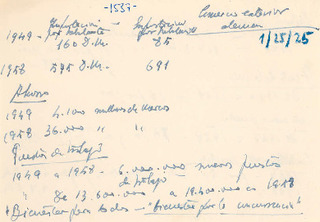 -1537-
Comercio exterior
alemán
1/25/25
Importación - Exportación
por habitante por habitante
1949 - 160 D.M. 85
1958 575 D.M. 691
Ahorro
1949 4.100 millones de marcos
1958 36.000 " "
Puestos de trabajo
1949 a 1958 - 6.000.000 nuevos puestos
de trabajo
De 13.600.000 a 19.600.000 en 1958
Bienestar para todos - "bienestar por la concurrencia"